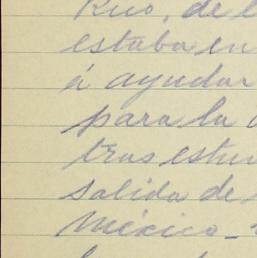 Rico, de l
estaba en
á ayudar
para la
tras estu
salida de
México -